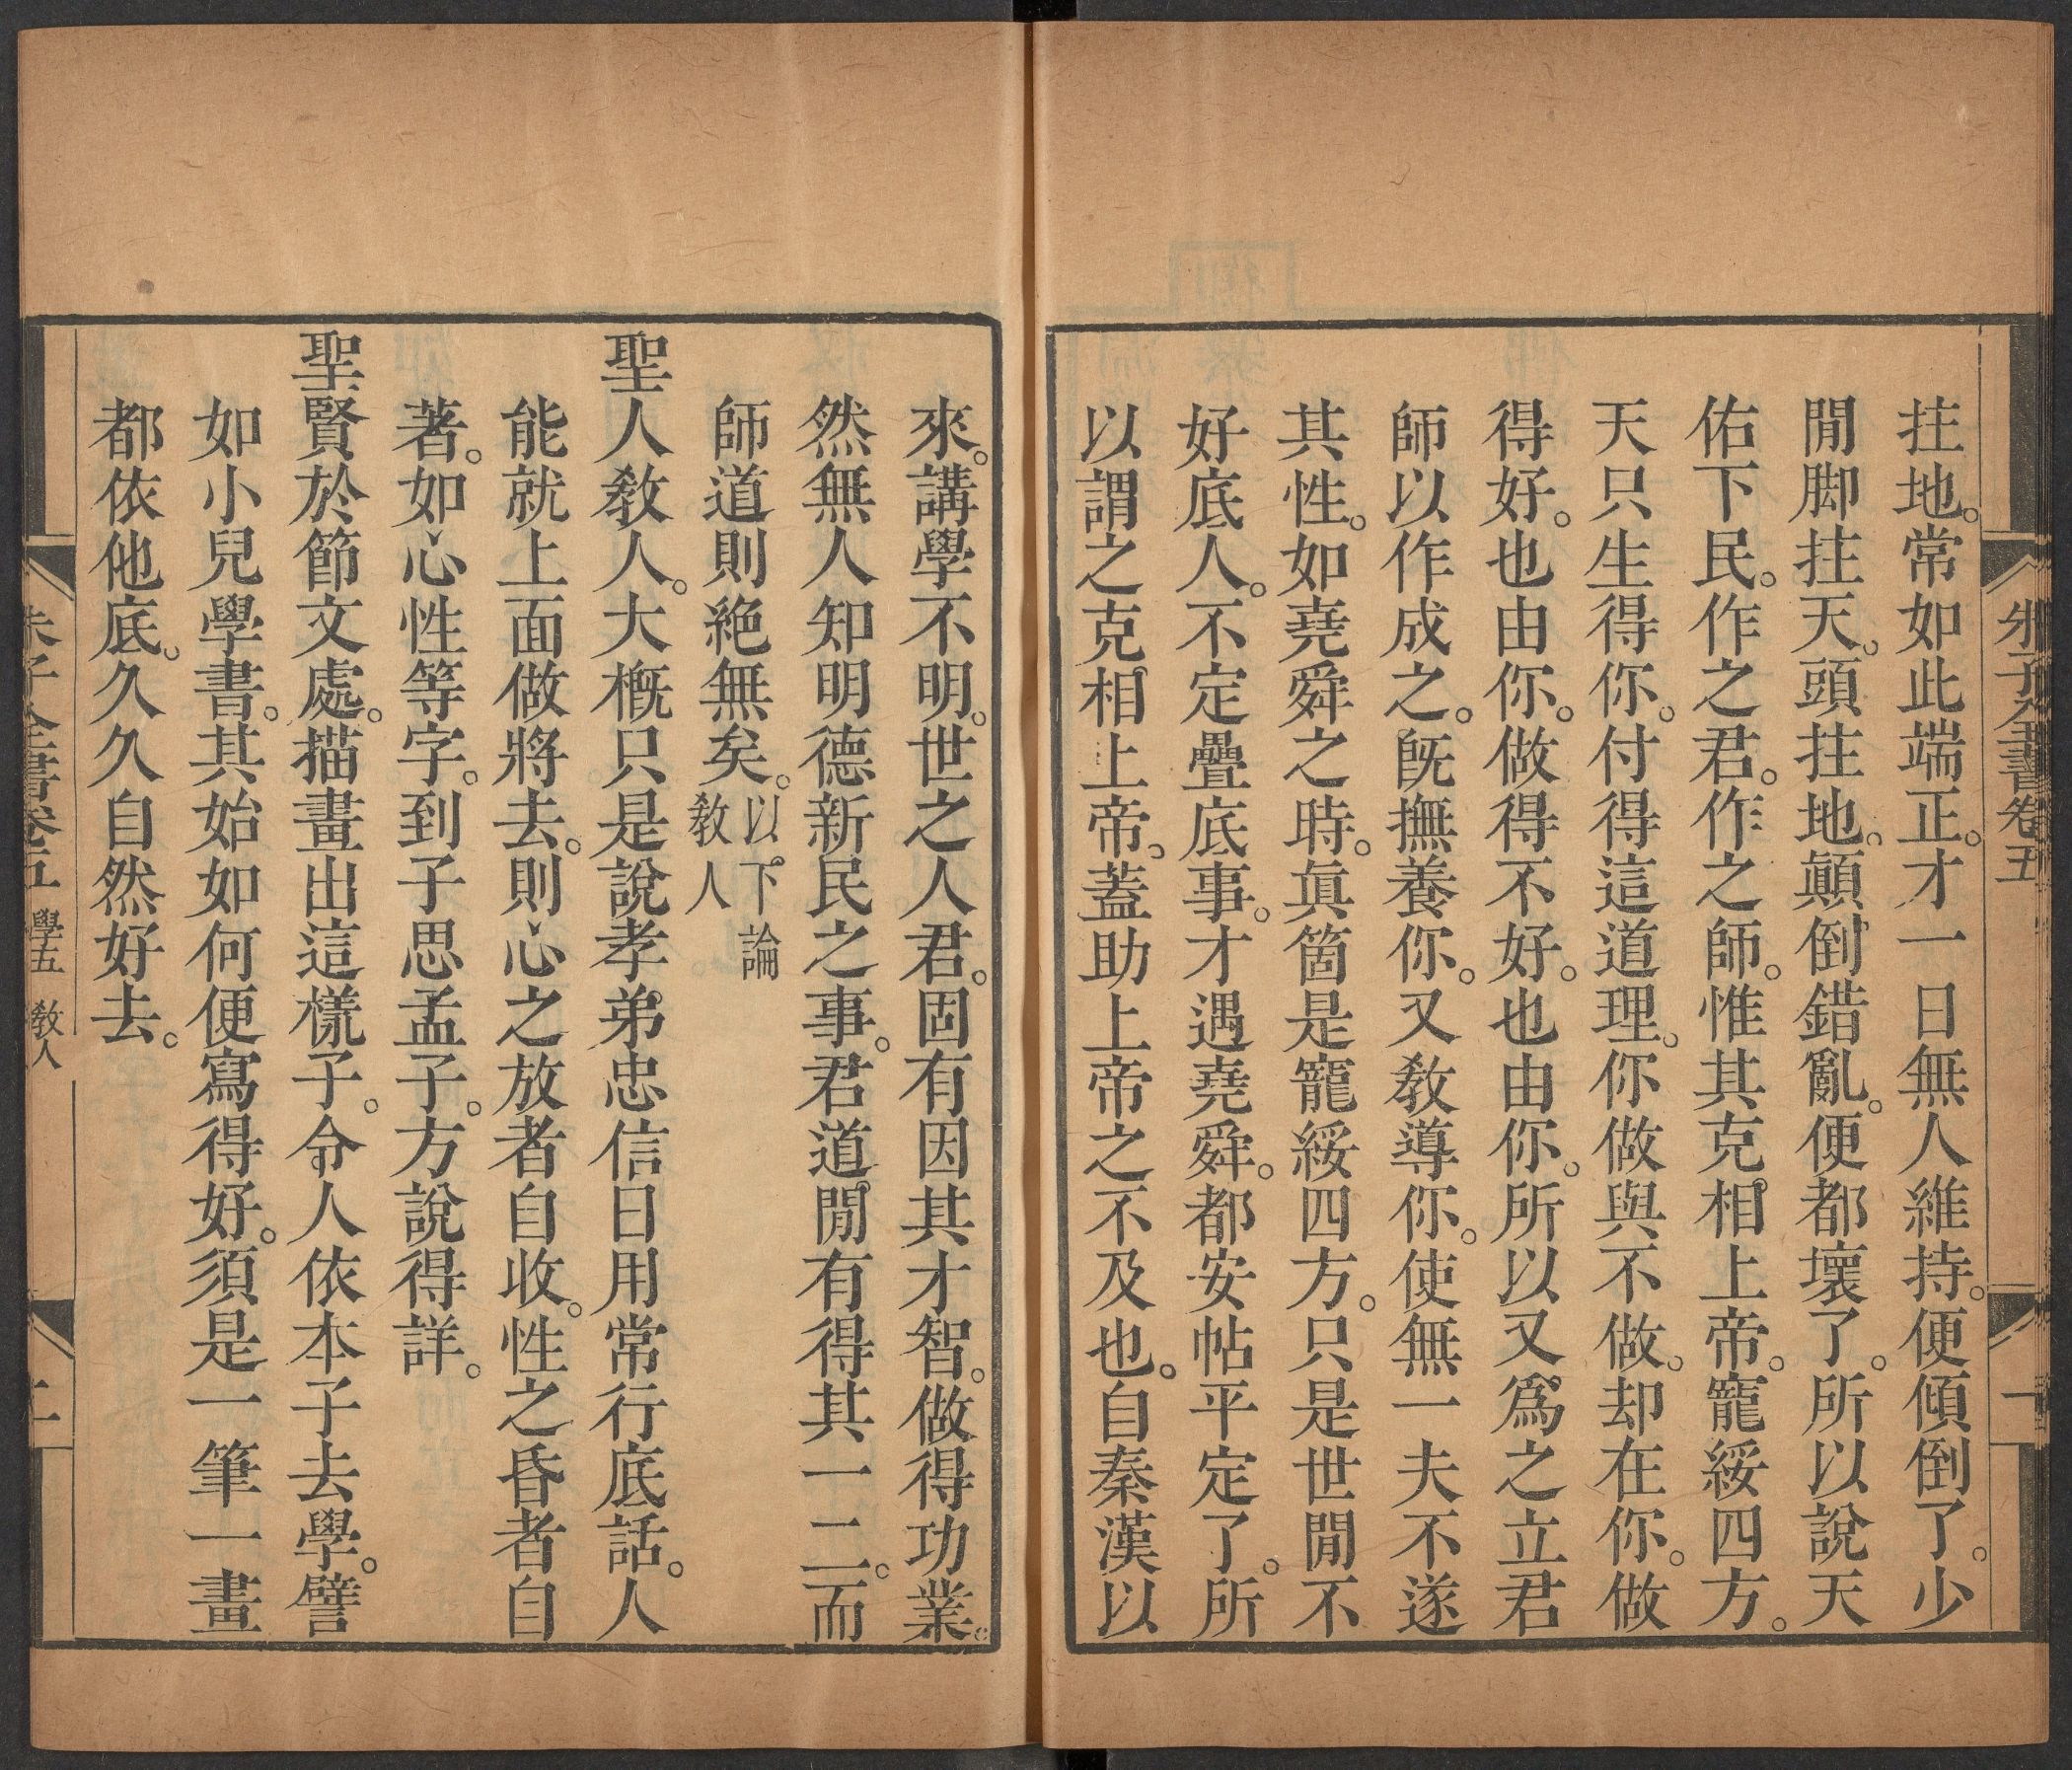 朱子全書卷五
一
拄地。常如此端正。才一日無人維持。便傾倒了。少
閒脚拄天。頭拄地。顛倒錯亂。便都壞了。所以說天
佑下民。作之君。作之師。惟其克相上帝。寵綏四方。
天只生得你。付得這道理。你做與不做。却在你。做
得好。也由你。做得不好。也由你。所以又爲之立君
師以作成之。旣撫養你。又敎導你。使無一夫不遂
其性。如堯舜之時。眞箇是寵綏四方。只是世閒不
好底人。不定疊底事。才遇堯舜。都安帖平定了。所
以謂之克相上帝。蓋助上帝之不及也。自秦漢以
來。講學不明。世之人君。固有因其才智。做得功業。
然無人知明德新民之事。君道閒有得其一二。而
師道則絕無矣。以下論敎人
聖人敎人。大槪只是說孝弟忠信日用常行底話。人
能就上面做將去。則心之放者自收。性之昏者自
著。如心性等字。到子思孟子。方說得詳。
聖賢於節文處。描畫出這樣子。令人依本子去學。譬
如小兒學書。其始如何便寫得好。須是一筆一畫
都依他底。久久自然好去。
朱子全書卷五 學五 敎人
二